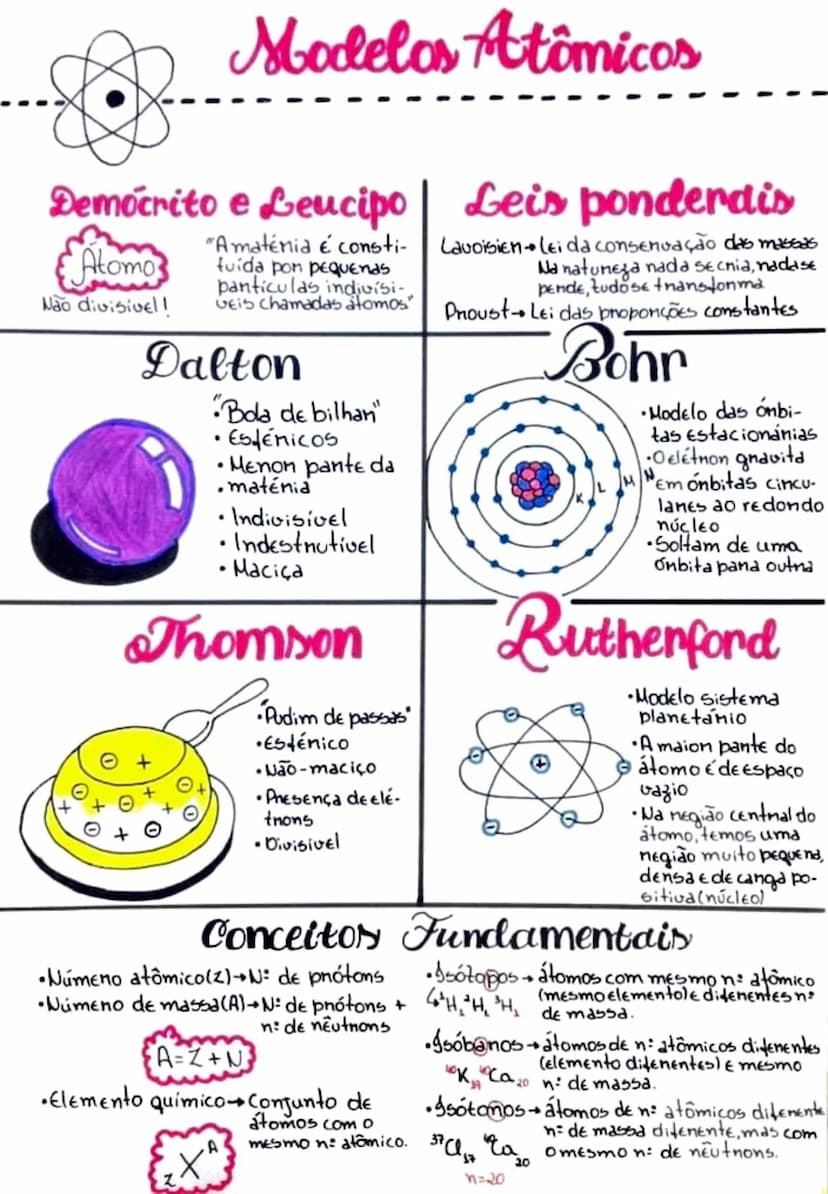 Modelos Atômicos
Demócrito e Leucipo
Átomo
Não divisível!
"A matéria é consti-
tuída por pequenas
partículas indivisí-
veis chamadas átomos"
Leis ponderais
Lavoisier→Lei da conservação das massas
Na natureza nada se cria, nada se
perde, tudo se transforma
Proust→Lei das proporções constantes
Dalton
• "Bola de bilhar"
• Esféricos
• Menor parte da
• matéria
• Indivisível
• Indestrutível
• Maciça
Bohr
K L M N
• Modelo das órbi-
tas estacionárias
• O elétron gravita
em órbitas circu-
lares ao redondo
núcleo
• Soltam de uma
órbita para outra
Thomson
• "Pudim de passas"
• Esférico
• Não-maciço
• Presença de elé-
trons
• Divisível
Rutherford
• Modelo sistema
planetário
• A maior parte do
átomo é de espaço
vazio
• Na região central do
átomo, temos uma
região muito pequena,
densa e de carga po-
sitiva (núcleo)
Conceitos Fundamentais
• Número atômico(Z)→Nº de prótons
• Número de massa(A)→Nº de prótons +
nº de nêutrons
A=Z+N
• Elemento químico→Conjunto de
átomos com o
mesmo nº atômico.
zXᴬ
• Isótopos→átomos com mesmo nº atômico
(mesmo elemento) e diferentes nº
de massa.
↳¹H₁ ²H₁ ³H₁
• Isóbaros→átomos de nº atômicos diferentes
(elemento diferentes) e mesmo
nº de massa.
⁴⁰K₁₉ ⁴⁰Ca₂₀
• Isótonos→átomos de nº atômicos diferente
nº de massa diferente, mas com
o mesmo nº de nêutrons.
³⁷Cl₁₇ Ca₂₀
n=20